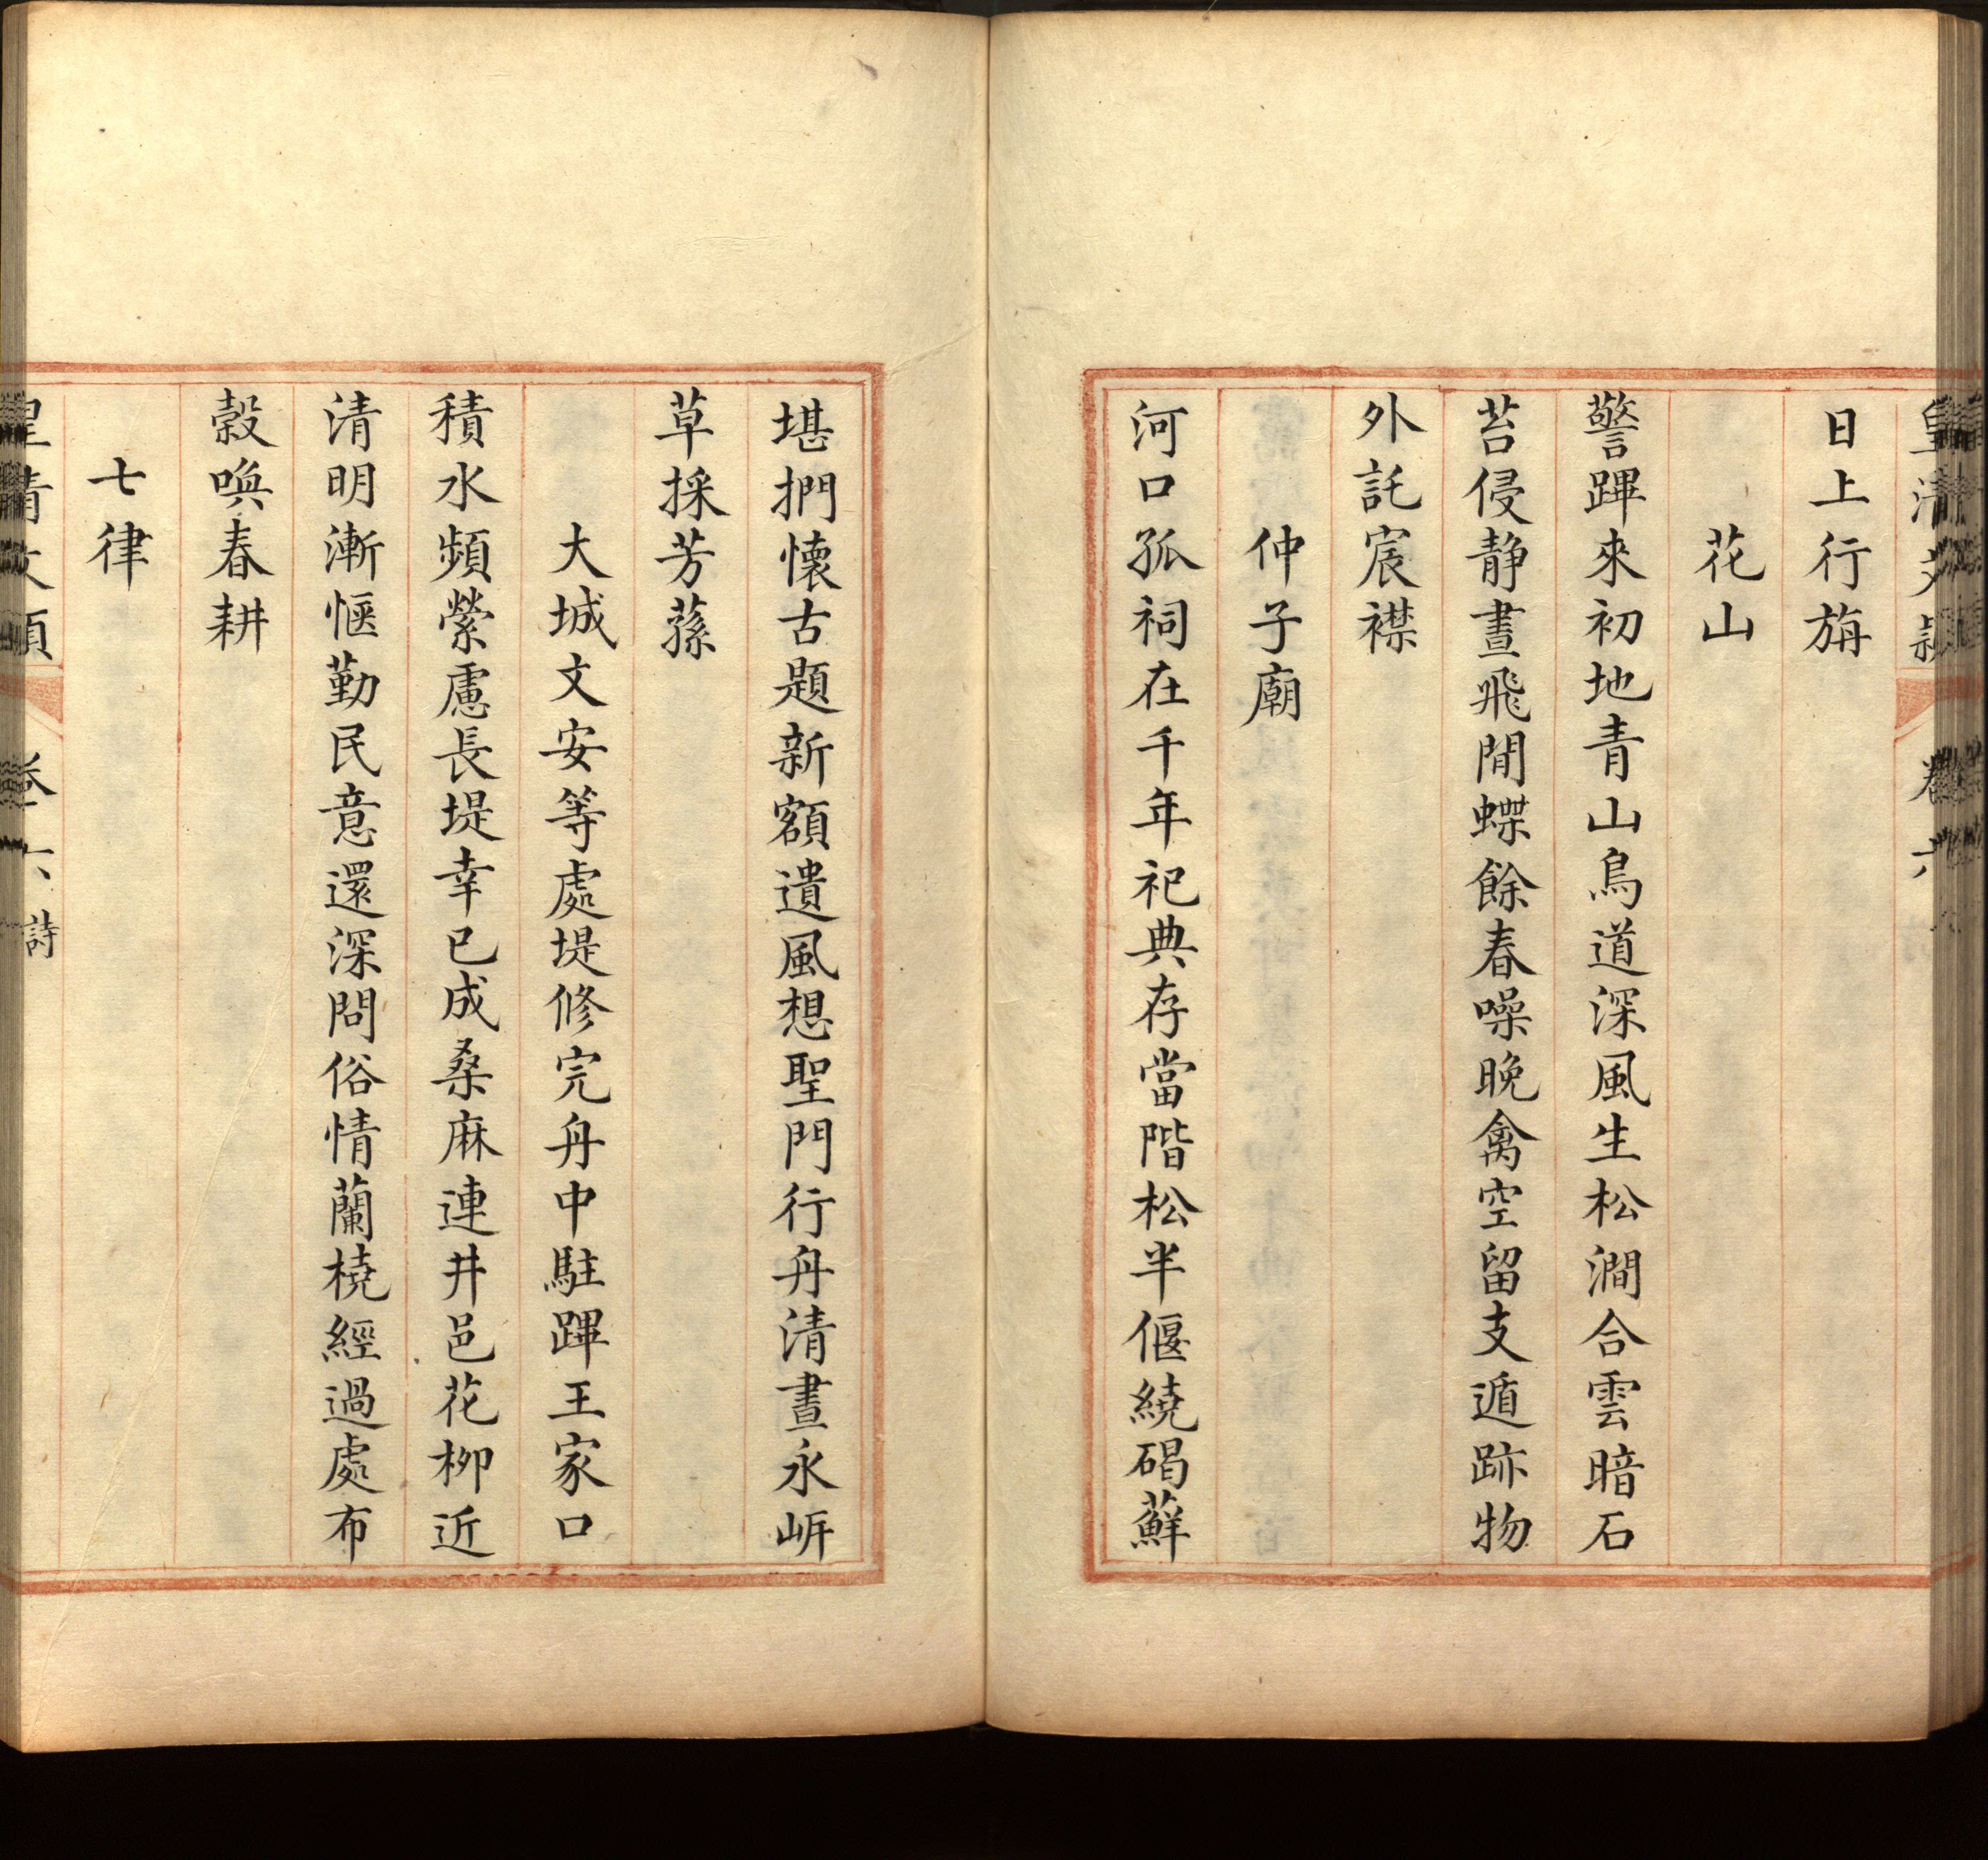 皇清文穎 卷六
日上行旃
花山
警蹕來初地青山鳥道深風生松澗合雲暗石
苔侵静晝飛閒蝶餘春噪晚禽空留支遁跡物
外託宸襟
仲子廟
河口孤祠在千年祀典存當階松半偃繞碣蘚
堪捫懷古題新額遺風想聖門行舟清晝永岍
草採芳蓀
大城文安等處堤修完舟中駐蹕王家口
積水頻縈慮長堤幸已成桑麻連井邑花柳近
清明漸愜勤民意還深問俗情蘭橈經過處布
穀喚春耕
七律
皇清文穎 卷六 詩